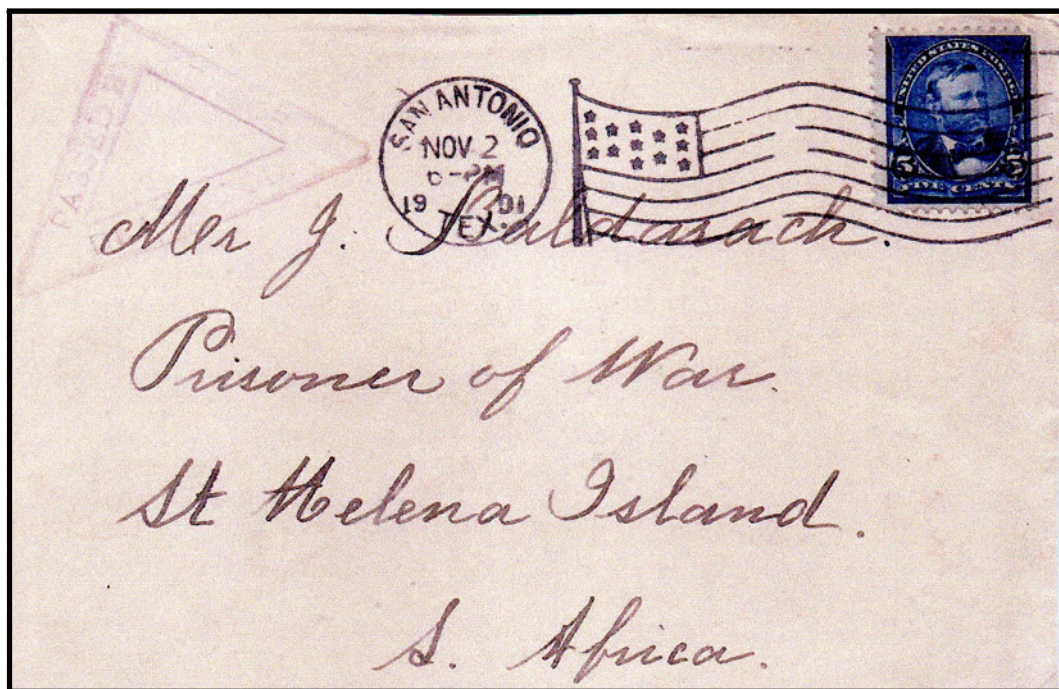 SAN ANTONIO
NOV 2
6-PM
19 01
TEX.
UNITED STATES POSTAGE
5 5
FIVE CENTS
Mr J. Baldarach.
Prisoner of War.
St Helena Island.
S. Africa.